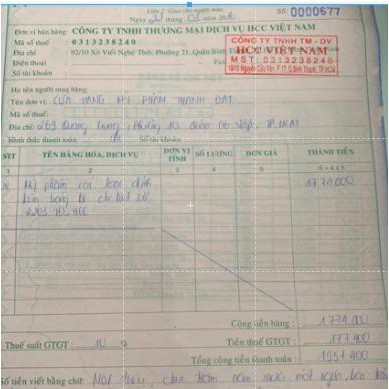 Liên 2: Giao cho người mua
Số: 0000677
Ngày tháng 03 năm
Đơn vị bán hàng: CÔNG TY TNHH THƯƠNG MẠI DỊCH VỤ HCC VIỆT NAM
Mã số thuế : 0313238240
Địa chỉ : 92/10 Xô Viết Nghệ Tĩnh, Phường 21, Quận Bình
Điện thoại :
Số tài khoản :
CÔNG TY TNHH TM - DV
HCC VIỆT NAM
MST: 0313238240
Họ tên người mua hàng:
Tên đơn vị: CỬA HÀNG MỸ PHẨM THÀNH ĐẠT
Mã số thuế:
Địa chỉ: 269 Quang Trung, Phường 10, Quận Gò Vấp, TP.HCM
Hình thức thanh toán: TM Số tài khoản:
STT TÊN HÀNG HÓA, DỊCH VỤ ĐƠN VỊ TÍNH SỐ LƯỢNG ĐƠN GIÁ THÀNH TIỀN
1 2 3 4 5 6 = 4 x 5
Mỹ phẩm các loại đính 1774000
kèm bảng kê chi tiết số
Cộng tiền hàng : 1.774.000
Thuế suất GTGT : 10 % Tiền thuế GTGT : 177.400
Tổng cộng tiền thanh toán : 1951.400
Số tiền viết bằng chữ: Một triệu chín trăm năm mươi mốt ngàn, bốn trăm